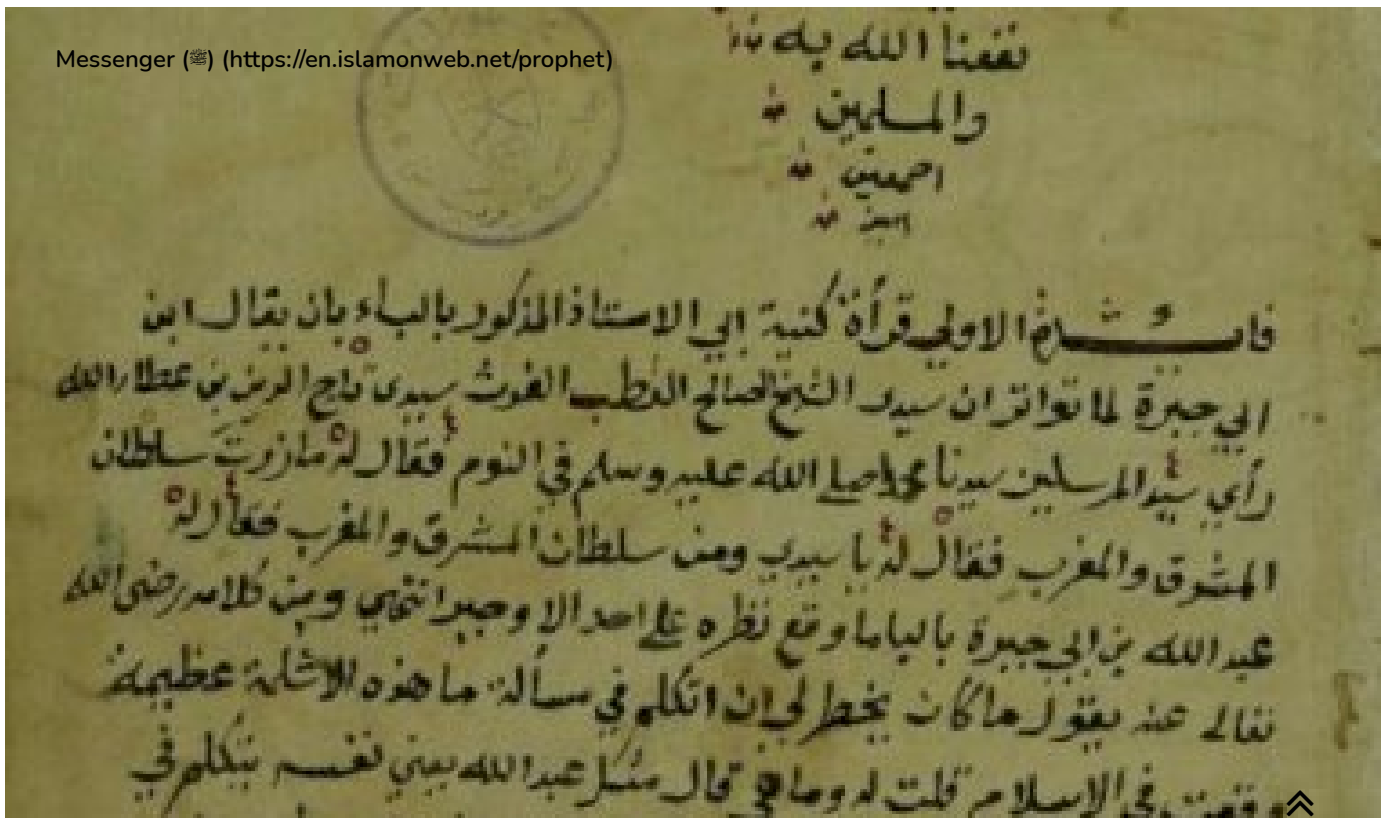 Messenger (ﷺ) (https://en.islamonweb.net/prophet)
نفعنا الله به
والمسلمين
اجمعين
امين
الاولي قرأة كنية ابي الاستاذ المذكور بالباء بان يقال ابن
ابي جبرة لما تواتر ان سيدي الشيخ الصالح القطب الغوث سيدي تاج الدين بن عطاء الله
رأي سيد المرسلين سيدنا محمدا صلي الله عليه وسلم في النوم فقال له ما زرت سلطان
المشرق والمغرب فقال له يا سيدي ومن سلطان المشرق والمغرب فقال له
عبد الله بن ابي جبرة بالباء ما وقع نظره علي احد الا وجبر انتهي ومن كلامه رضي الله
تعالي عنه يقول ما كان يخطر لي ان اتكلم في مسألة ما هذه الا عظيمة
وقعت في الاسلام قلت له وما هي قال مثل عبد الله يعني نفسه يتكلم في